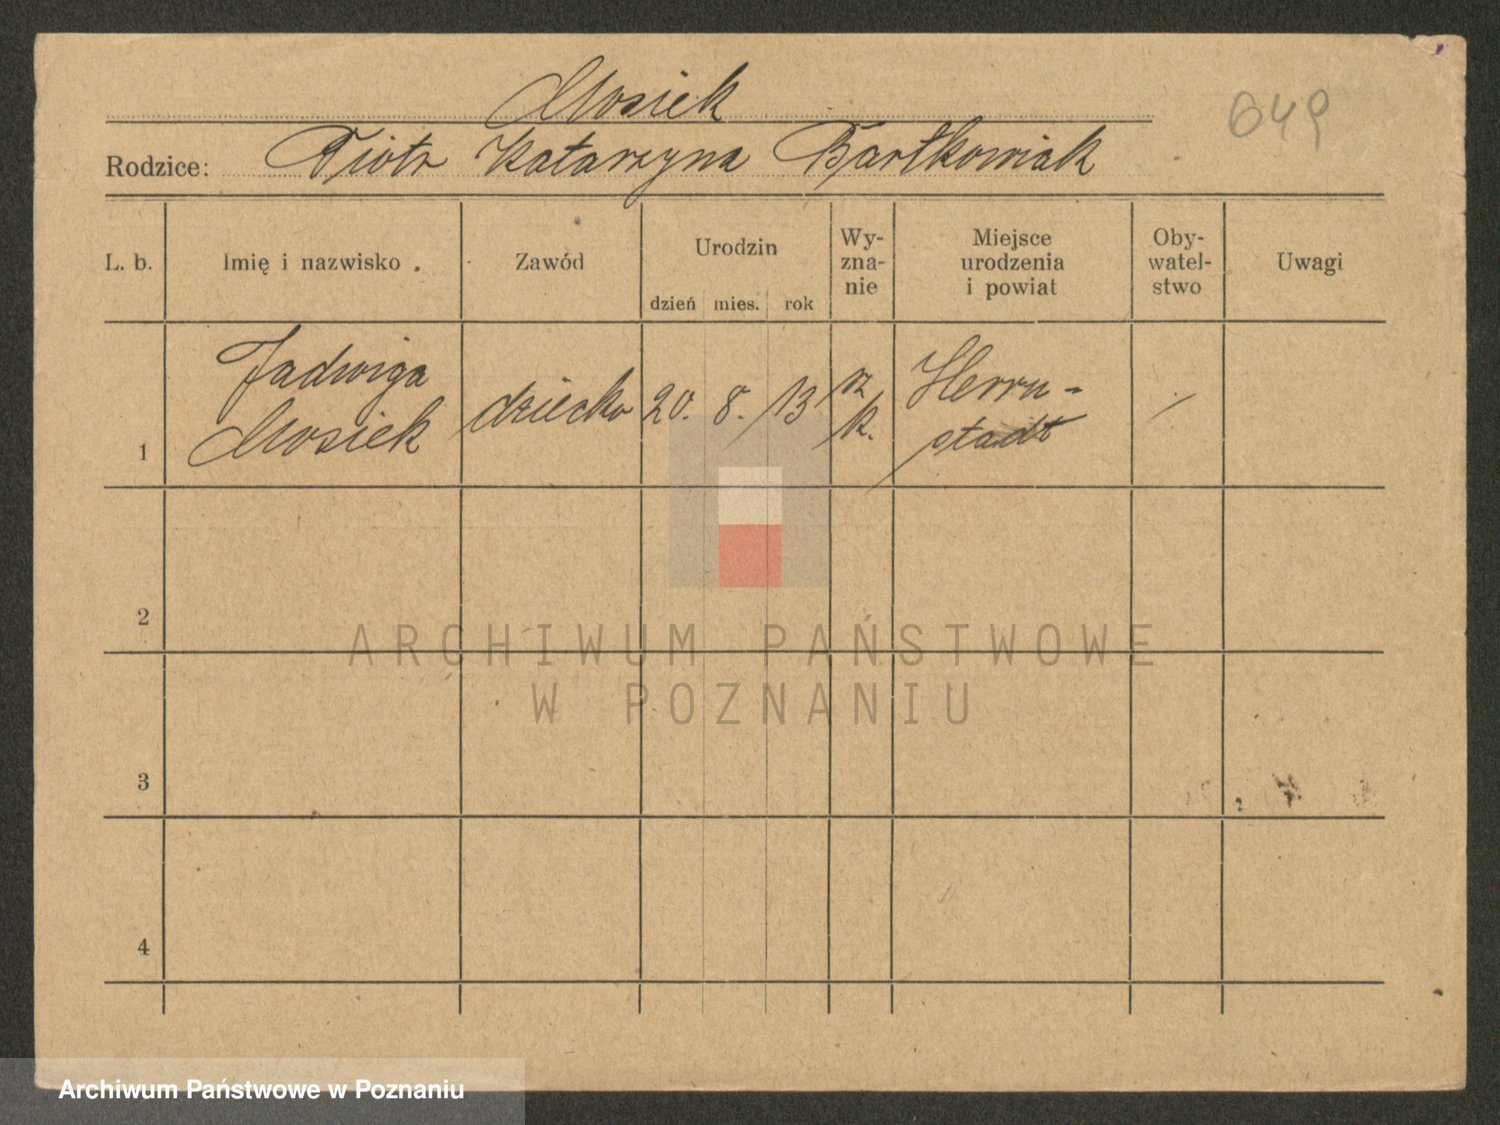 Mosiek
649
Rodzice: Piotr Katarzyna Bartkowiak
L. b. Imię i nazwisko Zawód Urodzin dzień mies. rok Wy-zna-nie Miejsce urodzenia i powiat Oby-watel-stwo Uwagi
Jadwiga
1 Mosiek dziecko 20. 8. 13 rz k. Herrn-
stadt
2
ARCHIWUM PAŃSTWOWE
W POZNANIU
3
4
Archiwum Państwowe w Poznaniu